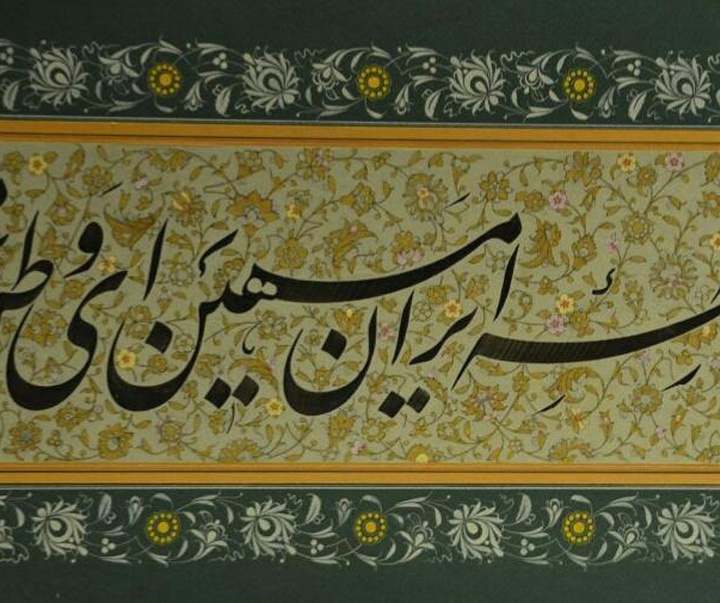 ایران مهین ای وطن